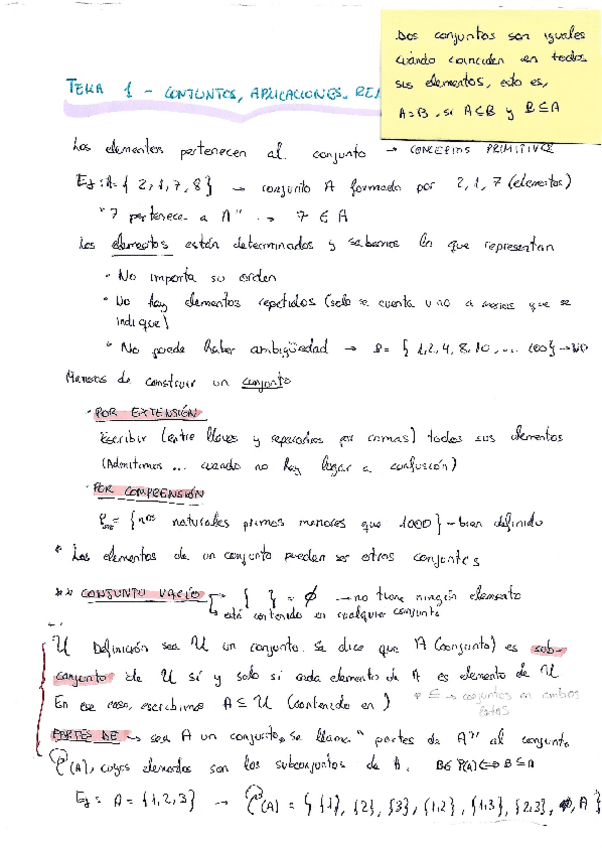 Dos conjuntos son iguales
cuando coinciden en todos
sus elementos, esto es,
A=B, si A⊆B y B⊆A
TEMA 1 - CONJUNTOS, APLICACIONES, REL
Los elementos pertenecen al conjunto → CONCEPTOS PRIMITIVOS
Ej: A={2,1,7,8} → conjunto A formado por 2,1,7 (elementos)
"7 pertenece a A" → 7 ∈ A
Los elementos están determinados y sabemos lo que representan
· No importa su orden
· No hay elementos repetidos (solo se cuenta uno a menos que se
indique)
· No puede haber ambigüedad → = {1,2,4,8,10,... 100} → NO
Maneras de construir un conjunto
· POR EXTENSIÓN
Escribir (entre llaves y separados por comas) todos sus elementos
(Admitimos ... cuando no hay lugar a confusión)
· POR COMPRENSIÓN
= {nos naturales primos menores que 1000} - bien definido
* Los elementos de un conjunto pueden ser otros conjuntos
** CONJUNTO VACÍO → { } = ∅ → no tiene ningún elemento
↳ está contenido en cualquier conjunto
U Definición sea U un conjunto. Se dice que A (conjunto) es sub-
conjunto de U sí y solo si cada elemento de A es elemento de U.
En ese caso, escribimos A ⊆ U (contenido en) * ⊆ → conjuntos en ambos
lados
PARTES DE → sea A un conjunto, se llama "partes de A" al conjunto
P(A), cuyos elementos son los subconjuntos de A. B∈P(A) ⟺ B⊆A
Ej: A={1,2,3} → P(A) = {{1}, {2}, {3}, {1,2}, {1,3}, {2,3}, ∅, A}